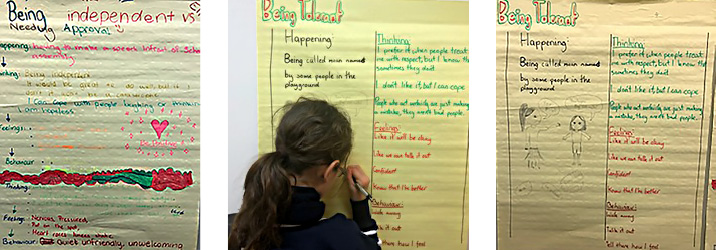 Being independent vs
Needing Approval
Happening: having to make a speech infront of School
assembly
Being independent
It would be great to do well, but it
I can cope with people laughing or thinking
I am hopeless
Feelings:
Be Independent
Behaviour
Thinking:
Feelings: Nervous, Pressured,
Put on the spot,
Heart races,
Behaviour: Quiet unfriendly, unwelcoming
Being Tolerant
Happening:
Being called mean names
by some people in the
playground
Thinking:
I prefer it when people treat
me with respect, but I know that
sometimes they don't
I don't like it but I can cope
People who act unkindly are just making
a mistake, they aren't bad people.
Feelings:
Like it will be okay
Like we can talk it out
Confident
Know that I'm better
Behaviour:
Walk away
Talk it out
Tell them how I feel
Being Tolerant
Happening:
Being called mean names
by some people in the
playground
Thinking:
I prefer it when people treat
me with respect, but I know that
sometimes they don't
I don't like it but I can cope
People who act unkindly are just making
a mistake, they aren't bad people.
Feelings:
Like it will be okay
Like we can talk it out
Confident
Know that I'm better
Behaviour:
Walk away
Talk it out
Tell them how I feel